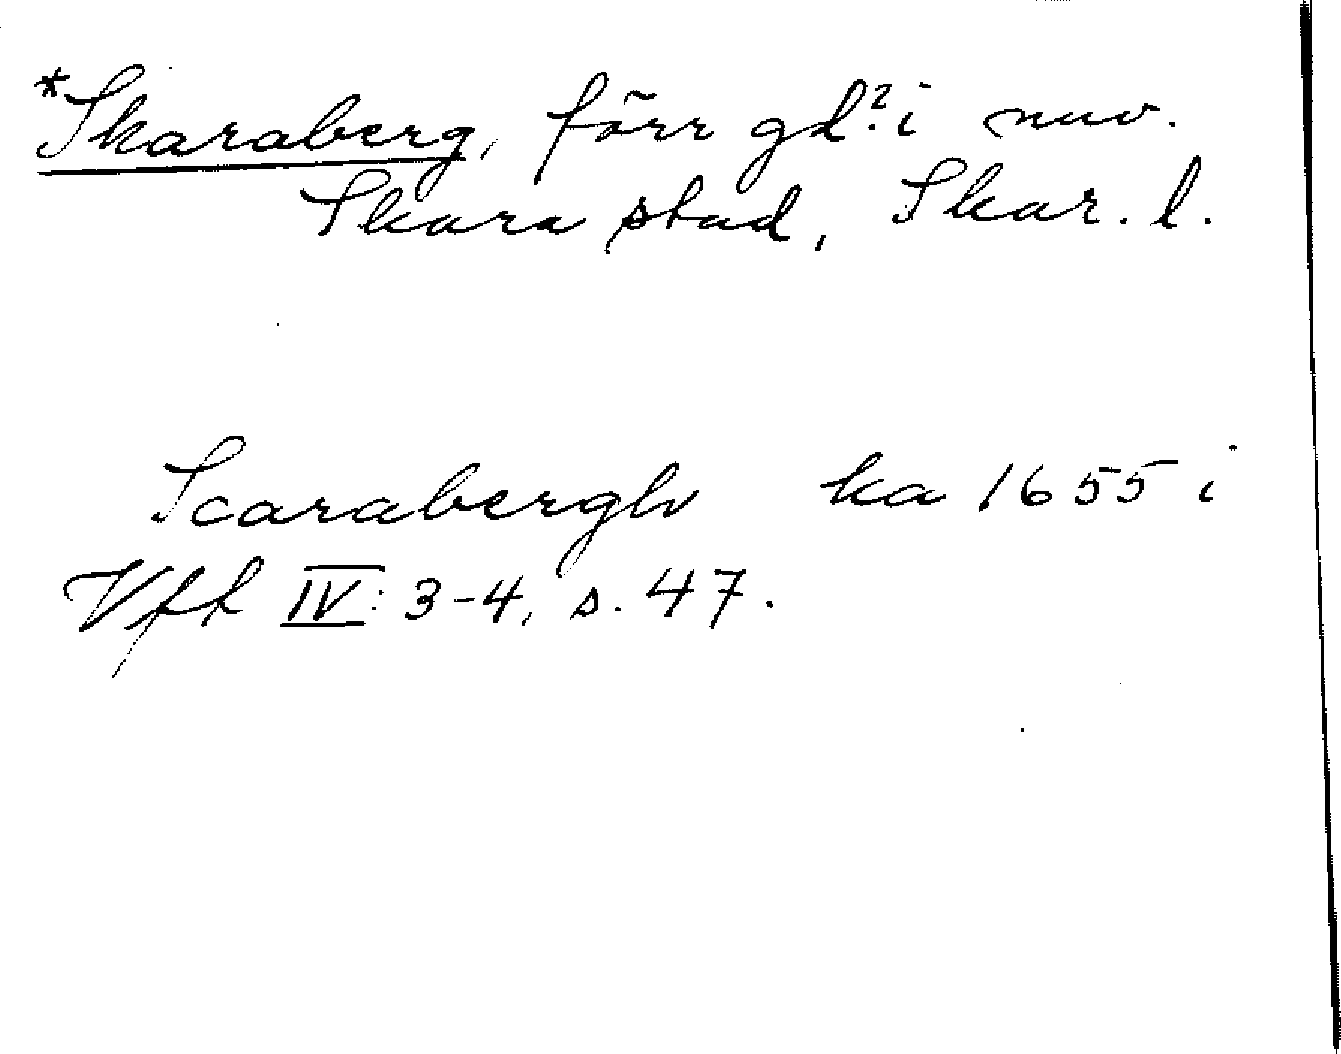 *Skaraberg, förr gd? i nuv.
Skara stad, Skar. l.
Scarabergh ka 1655 i
Vff IV: 3-4, s. 47.